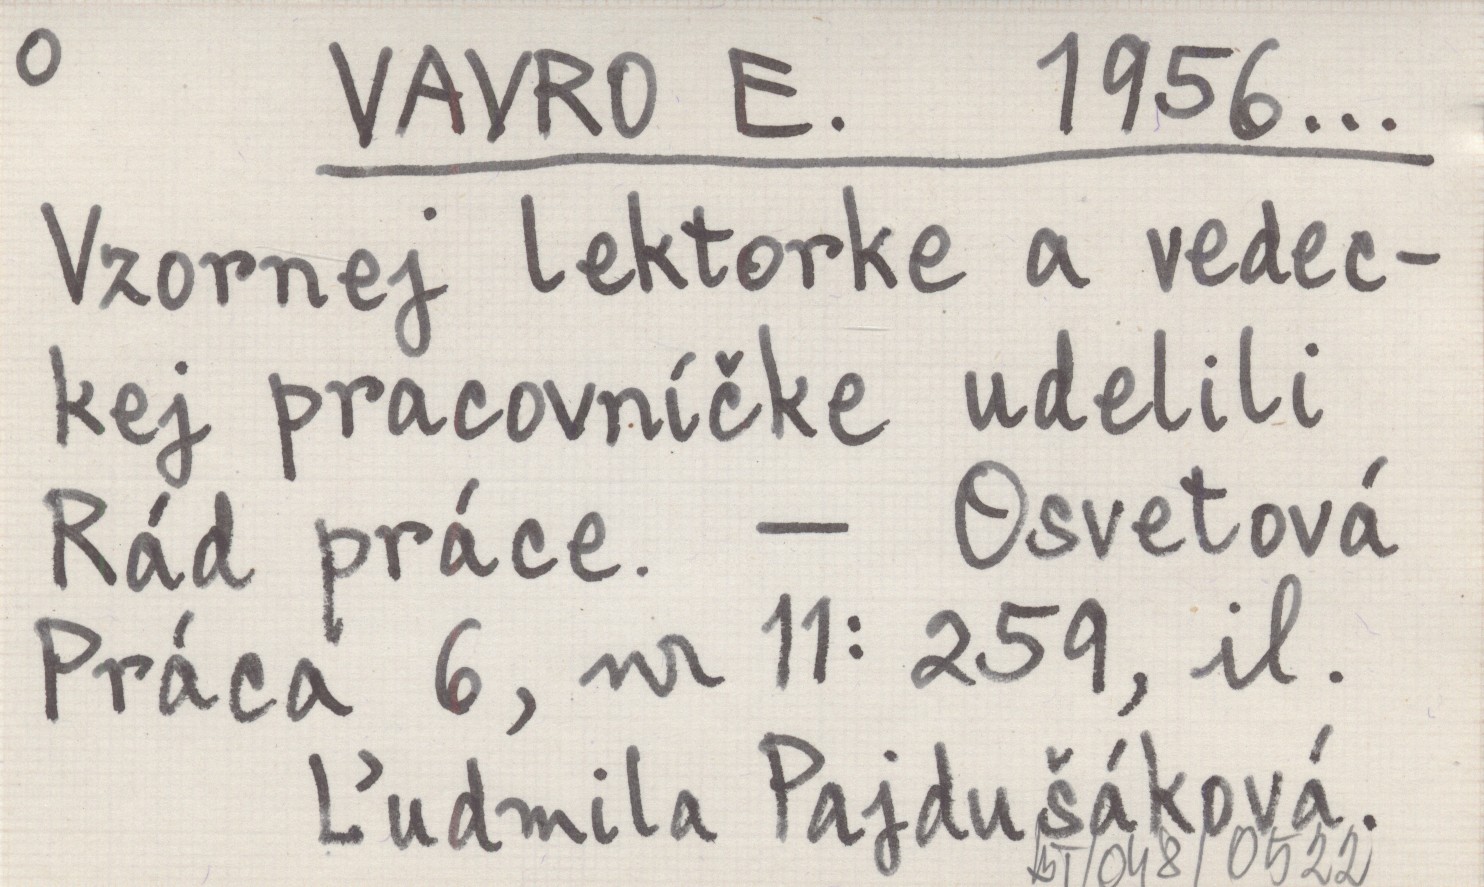 O VAVRO E. 1956...
Vzornej lektorke a vedec-
kej pracovníčke udelili
Rád práce. — Osvetová
Práca 6, nr 11: 259, il.
Ľudmila Pajdušáková.
/048/0522